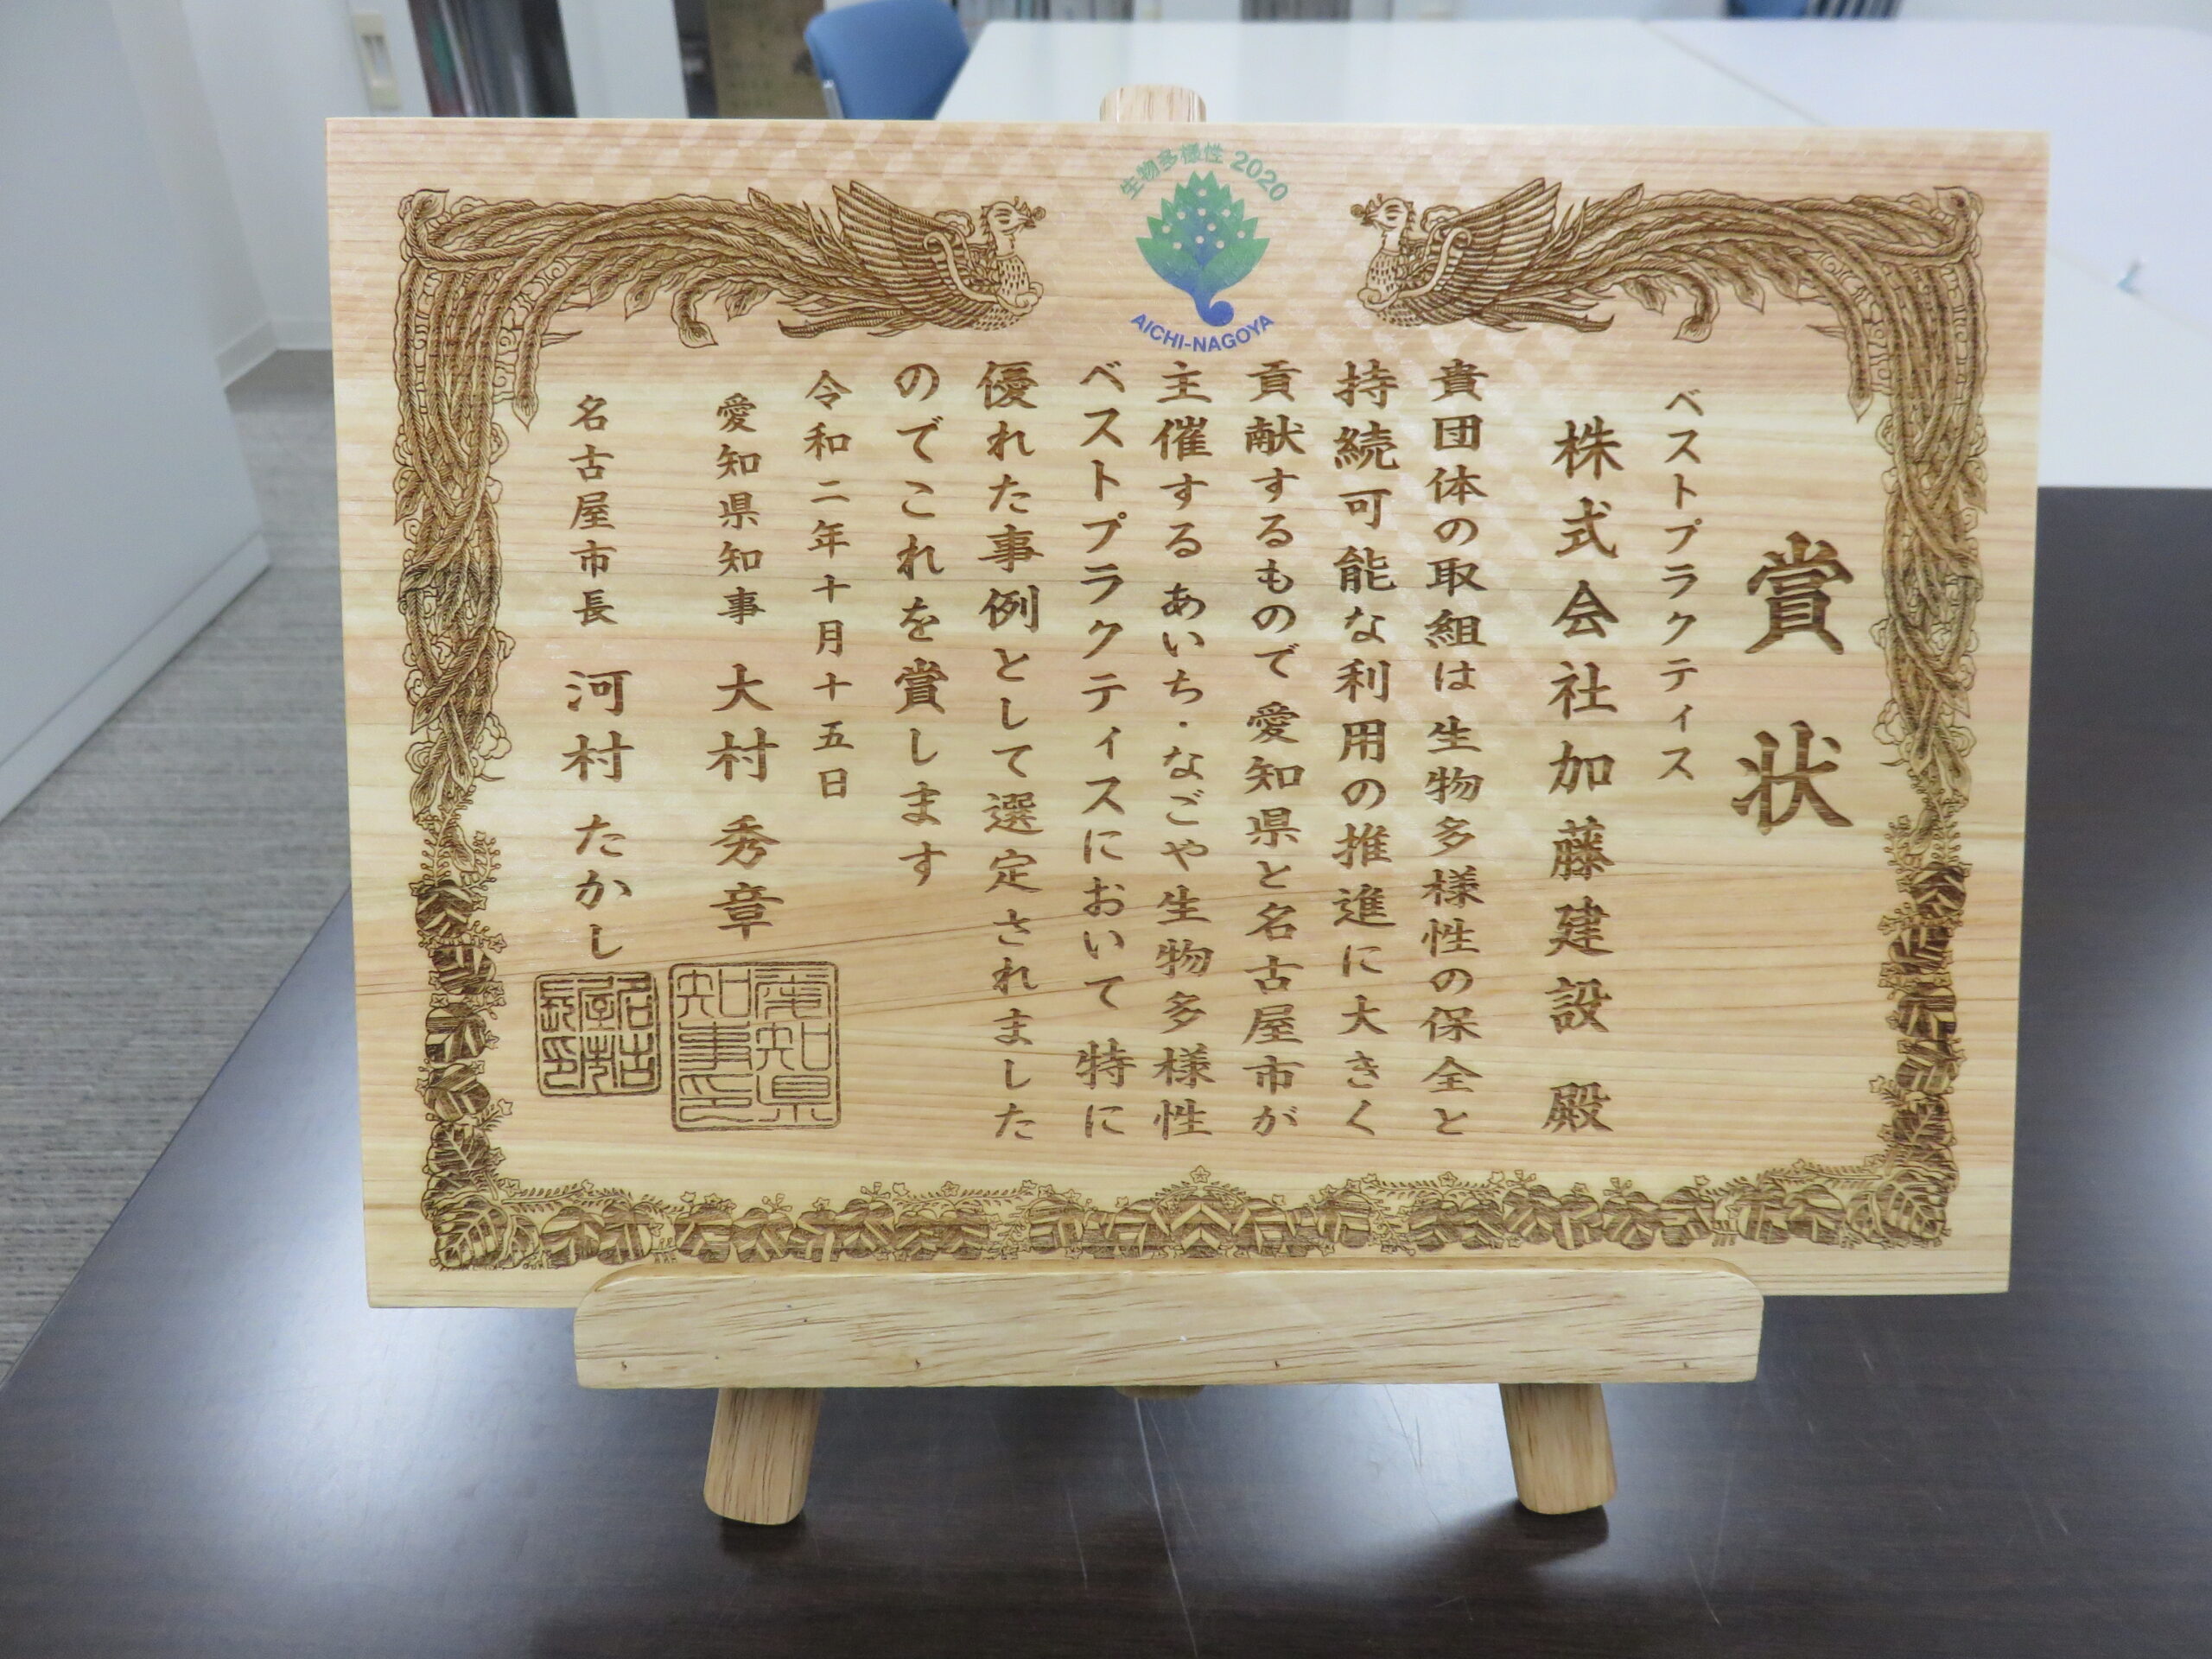 生物多様性 2020
AICHI-NAGOYA
賞状
ベストプラクティス
株式会社加藤建設 殿
貴団体の取組は 生物多様性の保全と
持続可能な利用の推進に大きく
貢献するもので 愛知県と名古屋市が
主催する あいち・なごや生物多様性
ベストプラクティスにおいて 特に
優れた事例として選定されました
のでこれを賞します
令和二年十月十五日
愛知県知事 大村秀章
愛知県知事印
名古屋市長 河村たかし
名古屋市長印